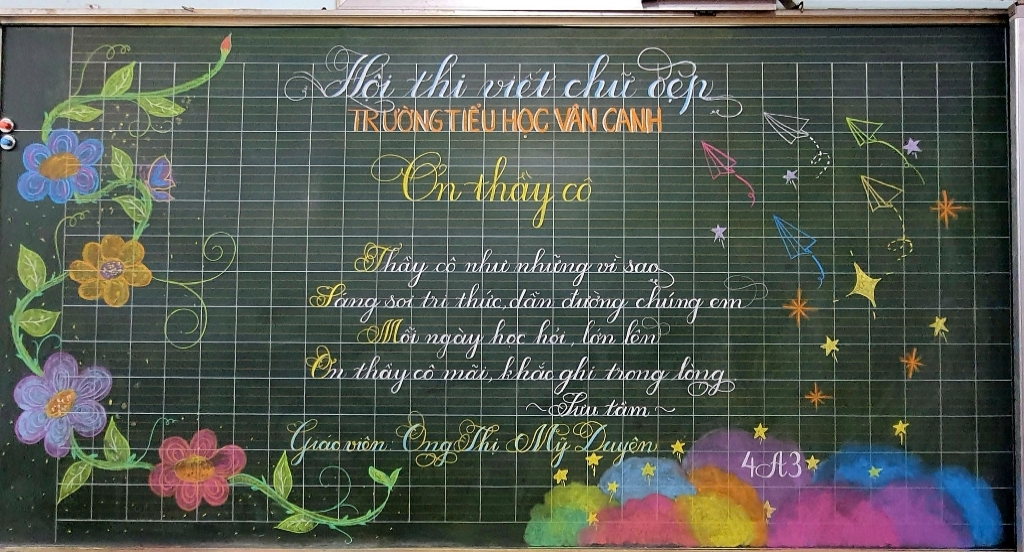 Hội thi viết chữ đẹp
TRƯỜNG TIỂU HỌC VÂN CANH
Ơn thầy cô
Thầy cô như những vì sao
Sáng soi tri thức, dẫn đường chúng em
Mỗi ngày học hỏi, lớn lên
Ơn thầy cô mãi, khắc ghi trong lòng
~ Sưu tầm ~
Giáo viên: Ong Thị Mỹ Duyên
4A3